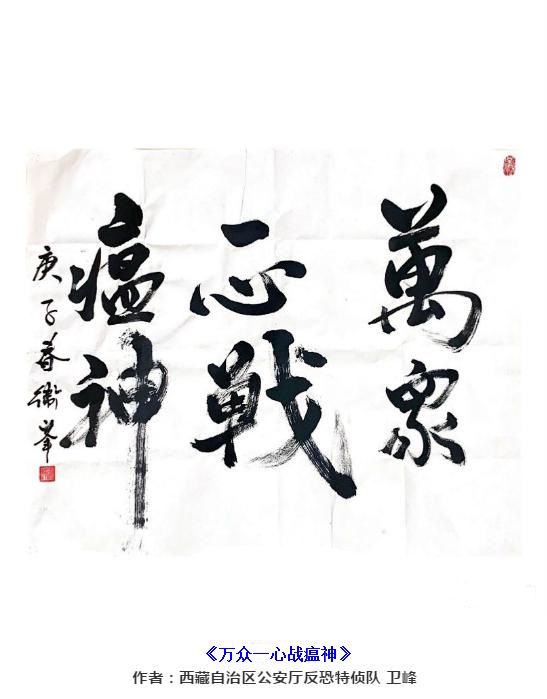 萬眾
一心戰
瘟神
庚子春衛峯
《万众一心战瘟神》
作者：西藏自治区公安厅反恐特侦队 卫峰